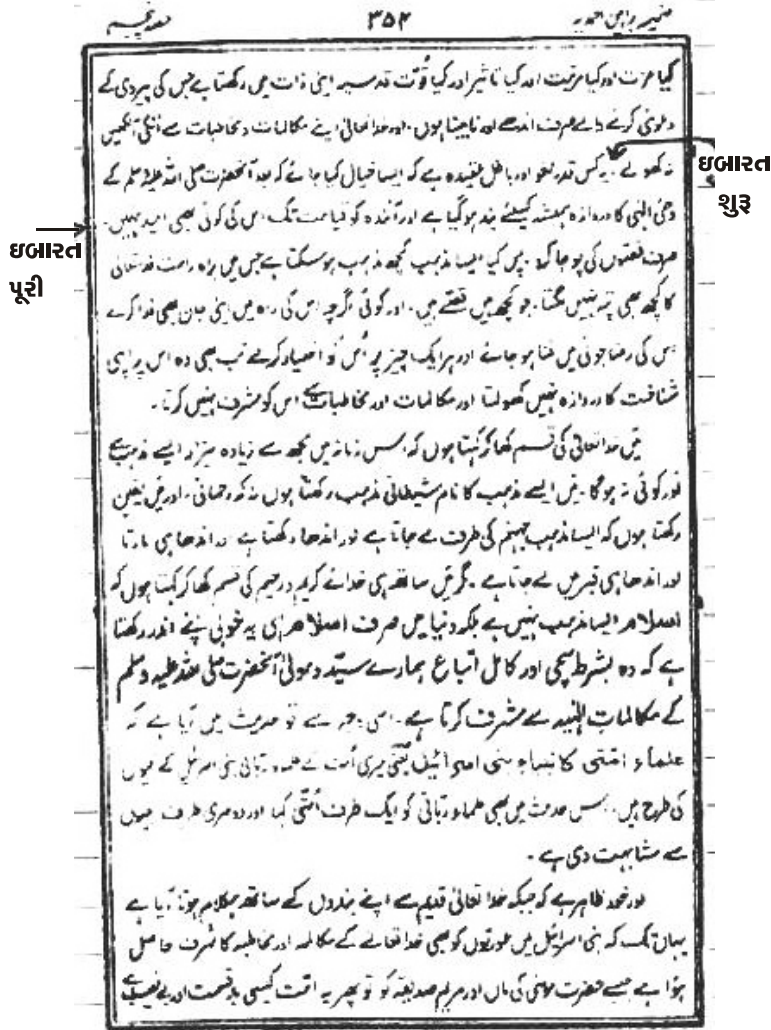 ضمیمہ براہین احمدیہ ۳۵۴ حصہ پنجم
کیا عزت اور کیا مرتبت اور کیا تاثیر اور کیا قوت قدسیہ اپنی ذات میں رکھتا ہے جس کی پیروی کے
دعویٰ کرنے والے صرف اندھے اور نابینا ہوں۔ اور خدا تعالیٰ اپنے مکالمات و مخاطبات سے انکی آنکھیں
نہ کھولے۔ یہ کس قدر لغو اور باطل عقیدہ ہے کہ ایسا خیال کیا جائے کہ بعد آنحضرت صلی اللہ علیہ وسلم کے
ઇબારત
શુરૂ
وحی الٰہی کا دروازہ ہمیشہ کیلئے بند ہو گیا ہے اور آئندہ کو قیامت تک اس کی کوئی بھی امید نہیں۔
ઇબારત
પૂરી
صرف قصّوں کی پوجا کرو۔ پس کیا ایسا مذہب کچھ مذہب ہو سکتا ہے جس میں براہ راست خدا تعالیٰ
کا کچھ بھی پتہ نہیں لگتا۔ جو کچھ ہیں قصّے ہیں۔ اور کوئی اگرچہ اس کی راہ میں اپنی جان بھی فدا کرے
اس کی رضا جوئی میں فنا ہو جائے اور ہر ایک چیز پر اُس کو اختیار کرلے تب بھی وہ اس پر اپنی
شناخت کا دروازہ نہیں کھولتا اور مکالمات اور مخاطبات سے اس کو مشرف نہیں کرتا۔
میں خدا تعالیٰ کی قسم کھا کر کہتا ہوں کہ اس زمانہ میں مجھ سے زیادہ بیزار ایسے مذہب سے
اور کوئی نہ ہوگا۔ میں ایسے مذہب کا نام شیطانی مذہب رکھتا ہوں نہ کہ رحمانی۔ اور میں یقین
رکھتا ہوں کہ ایسا مذہب جہنم کی طرف لے جاتا ہے اور اندھا رکھتا ہے اور اندھا ہی مارتا
اور اندھا ہی قبر میں لے جاتا ہے۔ مگر میں ساتھ ہی خدائے کریم و رحیم کی قسم کھا کر کہتا ہوں کہ
اسلام ایسا مذہب نہیں ہے بلکہ دنیا میں صرف اسلام ہی یہ خوبی اپنے اندر رکھتا
ہے کہ وہ بشرط سچی اور کامل اتباع ہمارے سیّد و مولیٰ آنحضرت صلی اللہ علیہ وسلم
کے مکالمات الٰہیہ سے مشرف کرتا ہے۔ اسی وجہ سے تو حدیث میں آیا ہے کہ
علماء امتی کانبیاء بنی اسرائیل یعنی میری اُمت کے علماء ربّانی بنی اسرائیل کے نبیوں
کی طرح ہیں۔ اس حدیث میں بھی علماء ربّانی کو ایک طرف اُمتی کہا اور دوسری طرف نبیوں
سے مشابہت دی ہے۔
اور خود ظاہر ہے کہ جبکہ خدا تعالیٰ قدیم سے اپنے بندوں کے ساتھ ہمکلام ہوتا آیا ہے
یہاں تک کہ بنی اسرائیل میں عورتوں کو بھی خدا تعالےٰ کے مکالمہ اور مخاطبہ کا شرف حاصل
ہوا ہے جیسے حضرت موسٰی کی ماں اور مریم صدیقہ کو تو پھر یہ امت کیسی بدقسمت اور بے نصیب ہے